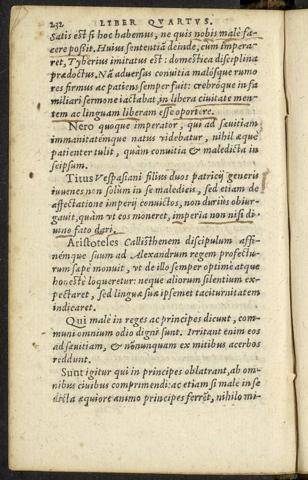 232 LIBER QVARTVS.
Satis est si hoc habemus, ne quis nobis malè fa-
cere possit. Huius sententiā deinde, cum impera-
ret, Tyberius imitatus est: domestica disciplina
prædoctus. Nā aduersus conuitia malósque rumo
res firmus ac patiens semper fuit: crebróque in fa
miliari sermone iactabat, in libera ciuitate men-
tem ac linguam liberam esse oportere.
Nero quoque imperator, qui ad sæuitiam
immanitatémque natus videbatur, nihil æquè
patienter tulit, quàm conuitia & maledicta in
seipsum.
Titus Vespasiani filius duos patricij generis
iuuenes non solùm in se maledicis, sed etiam de
affectatione imperij conuictos, non durius obiur-
gauit, quàm vt eos moneret, imperia non nisi di-
uino fato dari.
Aristoteles Callisthenem discipulum affi-
némque suum ad Alexandrum regem profectu-
rum sæpè monuit, vt de illo semper optimè atque
honestè loqueretur: neque aliorum silentium ex-
pectaret, sed lingua sua ipsemet taciturnitatem
indicaret.
Qui malè in reges ac principes dicunt, com-
muni omnium odio digni sunt. Irritant enim eos
ad sæuitiam, & nōnunquam ex mitibus acerbos
reddunt.
Sunt igitur qui in principes oblatrant, ab om-
nibus ciuibus comprimendi: ac etiam si malè in se
dicta æquiore animo principes ferrēt, nihilo mi-